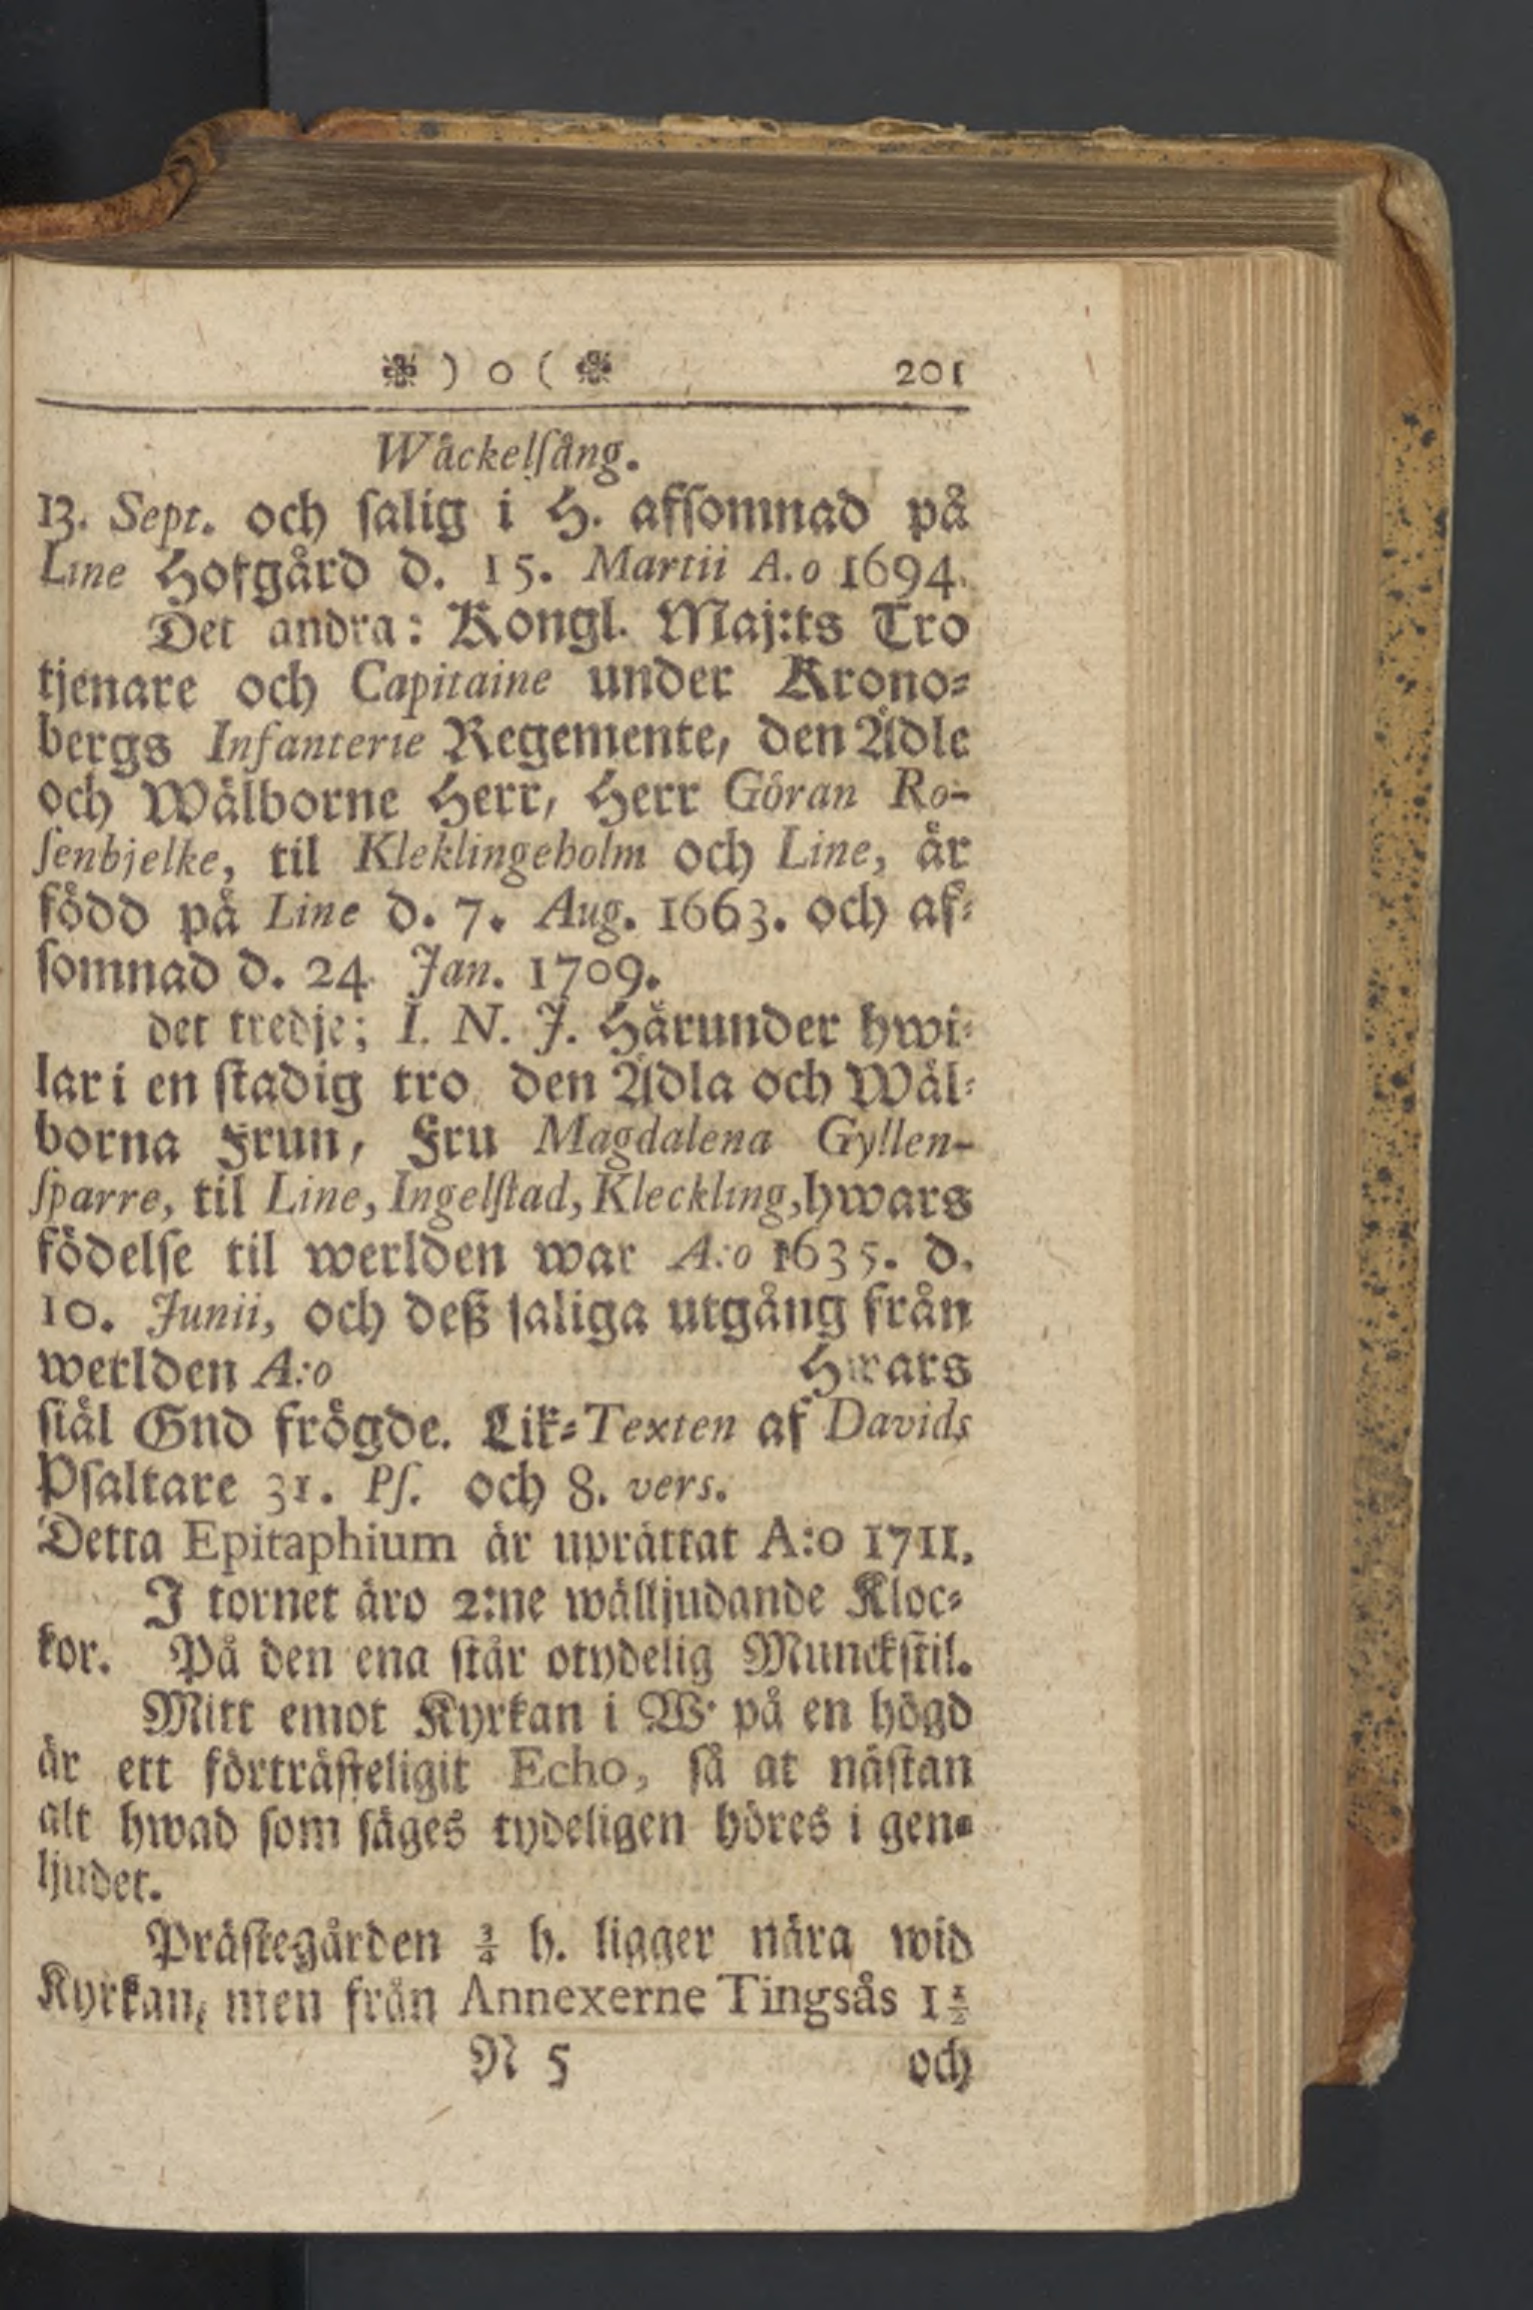 ❉ ) o ( ❉ 201
Wäckelſång.
13. Sept. och ſalig i H. afſomnad på
Line Hofgård d. 15. Martii A.o 1694.
Det andra: Kongl. Maj:ts Tro
tjenare och Capitaine under Krono-
bergs Infanterie Regemente, den Ädle
och Wälborne Herr, Herr Göran Ro-
ſenbjelke, til Kleklingeholm och Line, är
född på Line d. 7. Aug. 1663. och af-
ſomnad d. 24 Jan. 1709.
det tredje; I. N. J. Härunder hwi-
lar i en ſtadig tro den Ädla och Wäl-
borna Frun, Fru Magdalena Gyllen-
ſparre, til Line, Ingelſtad, Kleckling, hwars
födelſe til werlden war A:o 1635. d.
10. Junii, och deß ſaliga utgång från
werlden A:o Hwars
ſiäl Gud frögde. Lik-Texten af Davids
Pſaltare 31. Pſ. och 8. vers.
Detta Epitaphium är uprättat A:o 1711.
I tornet äro 2:ne wälljudande Kloc-
kor. På den ena ſtår otydelig Munckſtil.
Mitt emot Kyrkan i W. på en högd
är ett förträffeligit Echo, ſå at näſtan
alt hwad ſom ſäges tydeligen höres i gen-
ljudet.
Präſtegården ¾ h. ligger nära wid
Kyrkan, men från Annexerne Tingsås 1½
N 5 och